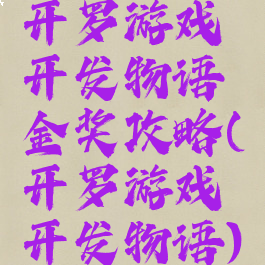 开罗游戏
开发物语
金奖攻略(
开罗游戏
开发物语)